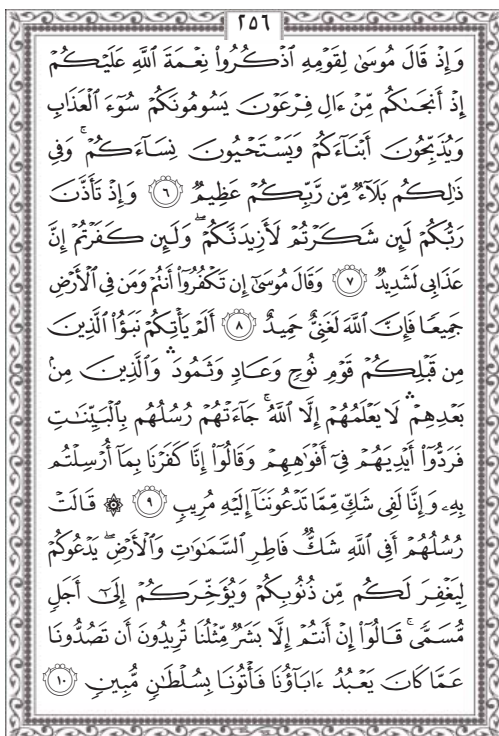 ٢٥٦
وَإِذْ قَالَ مُوسَىٰ لِقَوْمِهِ ٱذْكُرُوا۟ نِعْمَةَ ٱللَّهِ عَلَيْكُمْ
إِذْ أَنجَىٰكُم مِّنْ ءَالِ فِرْعَوْنَ يَسُومُونَكُمْ سُوٓءَ ٱلْعَذَابِ
وَيُذَبِّحُونَ أَبْنَآءَكُمْ وَيَسْتَحْيُونَ نِسَآءَكُمْ ۚ وَفِى
ذَٰلِكُم بَلَآءٌ مِّن رَّبِّكُمْ عَظِيمٌ ٦ وَإِذْ تَأَذَّنَ
رَبُّكُمْ لَئِن شَكَرْتُمْ لَأَزِيدَنَّكُمْ ۖ وَلَئِن كَفَرْتُمْ إِنَّ
عَذَابِى لَشَدِيدٌ ٧ وَقَالَ مُوسَىٰٓ إِن تَكْفُرُوٓا۟ أَنتُمْ وَمَن فِى ٱلْأَرْضِ
جَمِيعًا فَإِنَّ ٱللَّهَ لَغَنِىٌّ حَمِيدٌ ٨ أَلَمْ يَأْتِكُمْ نَبَؤُا۟ ٱلَّذِينَ
مِن قَبْلِكُمْ قَوْمِ نُوحٍ وَعَادٍ وَثَمُودَ ۛ وَٱلَّذِينَ مِنۢ
بَعْدِهِمْ ۛ لَا يَعْلَمُهُمْ إِلَّا ٱللَّهُ ۚ جَآءَتْهُمْ رُسُلُهُم بِٱلْبَيِّنَٰتِ
فَرَدُّوٓا۟ أَيْدِيَهُمْ فِىٓ أَفْوَٰهِهِمْ وَقَالُوٓا۟ إِنَّا كَفَرْنَا بِمَآ أُرْسِلْتُم
بِهِۦ وَإِنَّا لَفِى شَكٍّ مِّمَّا تَدْعُونَنَآ إِلَيْهِ مُرِيبٍ ٩ ۞ قَالَتْ
رُسُلُهُمْ أَفِى ٱللَّهِ شَكٌّ فَاطِرِ ٱلسَّمَٰوَٰتِ وَٱلْأَرْضِ ۖ يَدْعُوكُمْ
لِيَغْفِرَ لَكُم مِّن ذُنُوبِكُمْ وَيُؤَخِّرَكُمْ إِلَىٰٓ أَجَلٍ
مُّسَمًّى ۚ قَالُوٓا۟ إِنْ أَنتُمْ إِلَّا بَشَرٌ مِّثْلُنَا تُرِيدُونَ أَن تَصُدُّونَا
عَمَّا كَانَ يَعْبُدُ ءَابَآؤُنَا فَأْتُونَا بِسُلْطَٰنٍ مُّبِينٍ ١٠